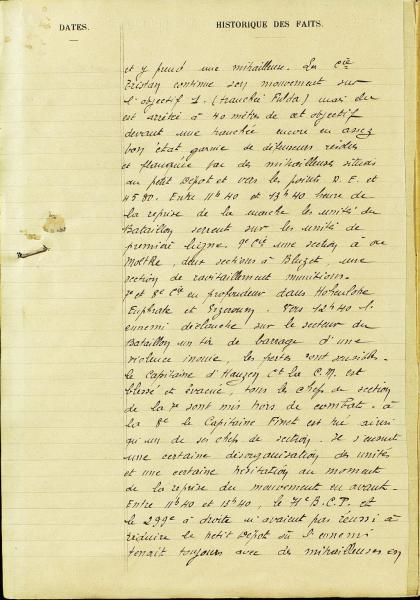 DATES.
HISTORIQUE DES FAITS.
et y prend une mitrailleuse. La Cie
Tristan continue son mouvement sur
l'objectif 1. (tranchée Fulda) mais elle
est arrêtée à 40 mètres de cet objectif
devant une tranchée encore en assez
bon état garnie de défenseurs résolus
et flanquée par des mitrailleuses situées
au petit Dépôt et vers les points D. E. et
4580. Entre 11h40 et 13h40 heure de
la reprise de la marche les unités du
Bataillon serrent sur les unités de
première ligne. 9e Cie une section à
Moltke, deux sections à Bluzet, une
section de ravitaillement munitions.
7e et 8e Cie en profondeur dans Hohenlohe
Euphrate et Erzeroum. Vers 12h40 l'
ennemi déclanche sur le secteur du
Bataillon un tir de barrage d'une
violence inouie, les pertes sont sensibles.
le Capitaine d'Hauzen Ct la C.M. est
blessé et évacué, tous les chefs de section
de la 7e sont mis hors de combat. à
la 8e le Capitaine Finet est tué ainsi
qu'un de ses chefs de section. Il s'ensuit
une certaine désorganisation des unités
et une certaine hésitation au moment
de la reprise du mouvement en avant.
Entre 11h40 et 13h40, le 71e B.C.P. et
le 299e à droite n'avaient pas réussi à
réduire le petit Dépôt où l'ennemi
tenait toujours avec des mitrailleuses en